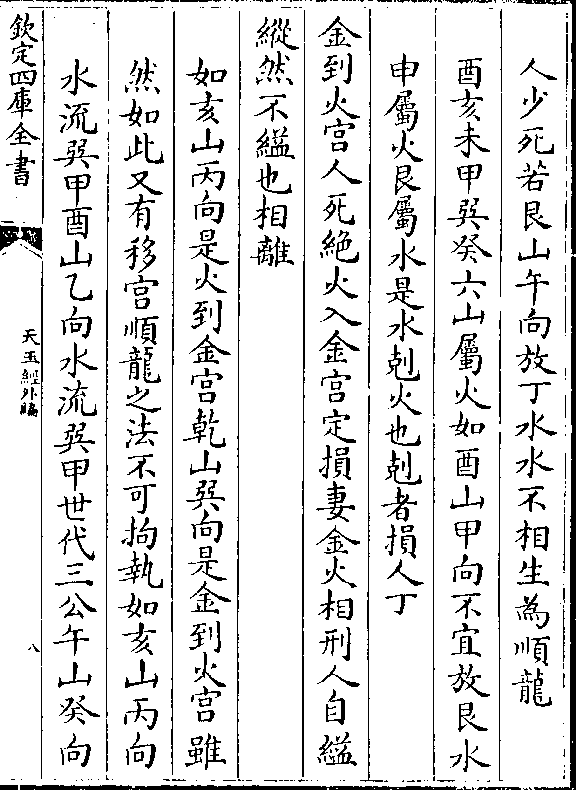 人少死若艮山午向放丁水水不相生為順龍
酉亥未甲巽癸六山屬火如酉山甲向不宜放艮水
申屬火艮屬水是水剋火也剋者損人丁
金到火宮人死絶火入金宮定損妻金火相刑人自縊
縱然不縊也相離
如亥山丙向是火到金宮乾山巽向是金到火宮雖
然如此又有移宮順龍之法不可拘執如亥山丙向
水流巽甲酉山乙向水流巽甲世代三公午山癸向
欽定四庫全書
天玉經外編
八